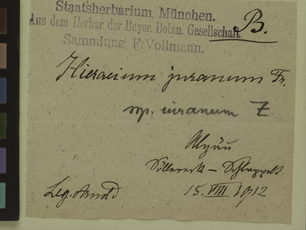 Staatsherbarium, München.
B.
Aus dem Herbar der Bayer. Botan. Gesellschaft
Sammlung F. Vollmann.
Hieracium juranum Fr.
ssp. juranum Z
Algäu
Söllereck - Schlappolt
Leg. Arnold 15. VIII 1912